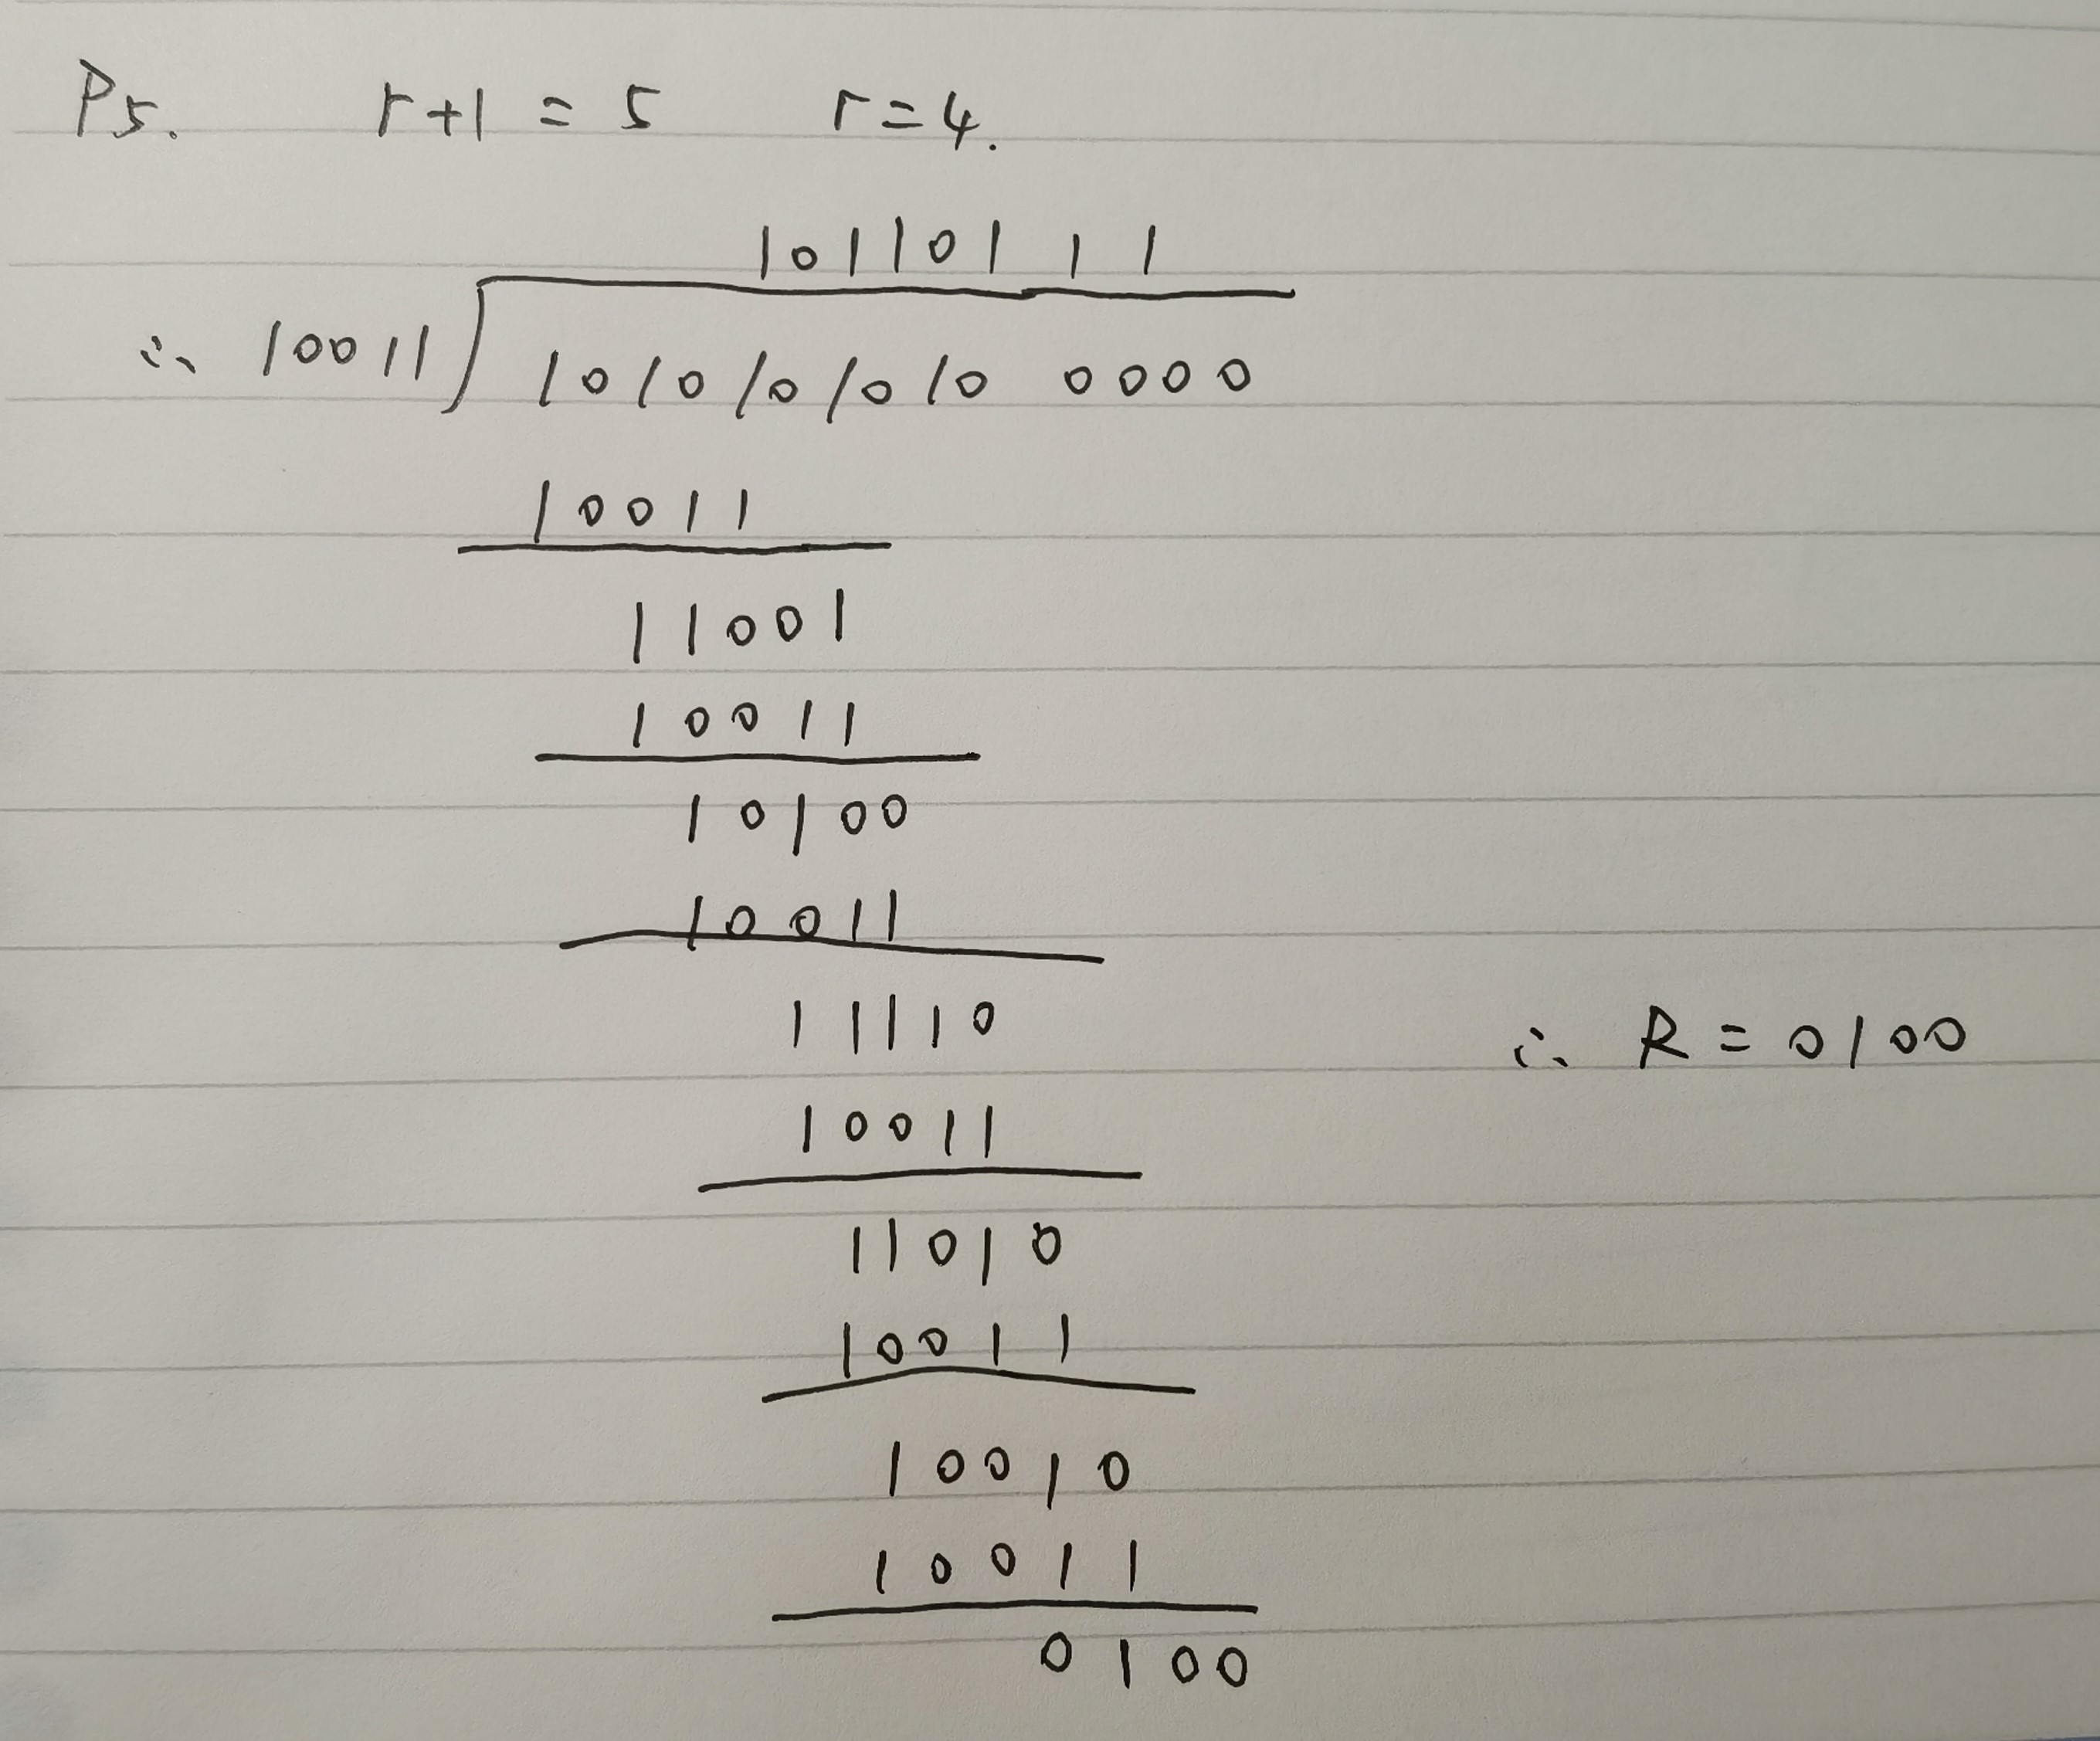 P5. r+1 = 5 r=4.
10110111
∴ 10011 1010101010 0000
10011
11001
10011
10100
10011
11110
∴ R = 0100
10011
11010
10011
10010
10011
0100